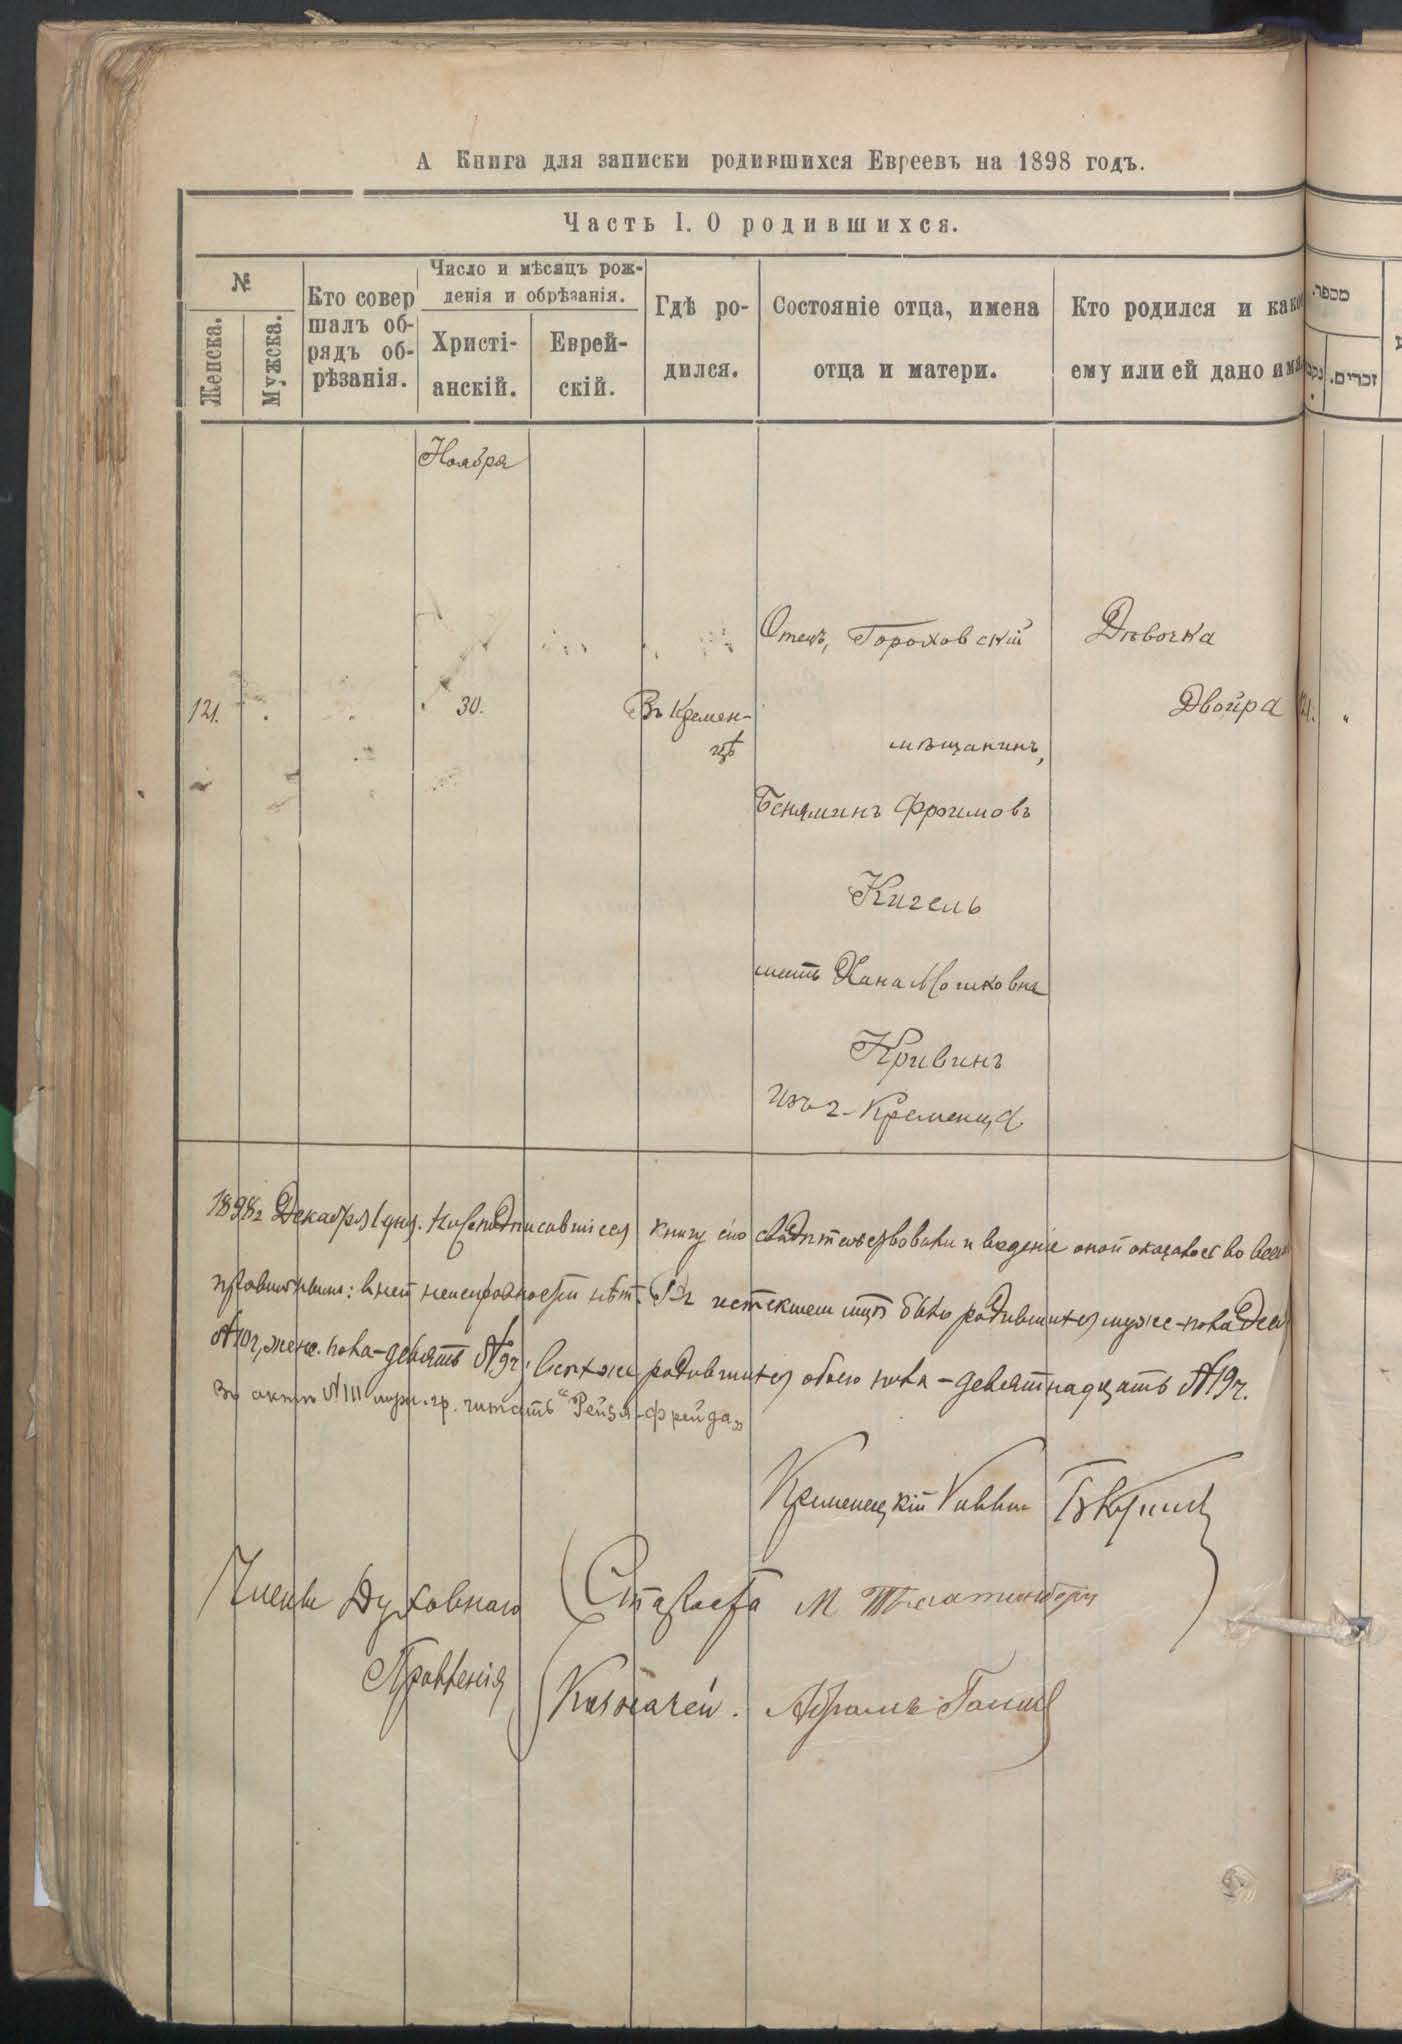 А Книга для записки родившихся Евреевъ на 1898 годъ.
Часть I. О родившихся.
№
Женска.
Мужска.
Кто совер
шалъ об-
рядъ об-
рѣзанія.
Число и мѣсяцъ рож-
денія и обрѣзанія.
Христі-
анскій.
Еврей-
скій.
Гдѣ ро-
дился.
Состояніе отца, имена
отца и матери.
Кто родился и како
ему или ей дано имя
מספר.
זכרים.
Ноября
121.
30.
Въ Кремен-
цѣ
Отецъ, Гороховскій
мѣщанинъ,
Беняминъ Фроимовъ
Кигель
мать Хана Мошковна
Кривинъ
изъ г. Кременца
Дѣвочка
Двойра
1898 г Декабря 1 дня. Нижеподписавшіеся книгу сію свидѣтельствовали и веденіе оной оказалось во всемъ
правильнымъ: въ ней неисправности нѣтъ. Въ истекшем было родившихся муже-пола
№ 10 ч, жен. пола – девять № 9 ч; всѣхъ же родившихся обоего пола – девятнадцать № 19 ч.
Въ актѣ № 111 гр. читать "Рейзя-Фрейда"
Кременецкій Раввин
Члены Духовнаго
Правленія
Староста М
Казначей. Абрамъ